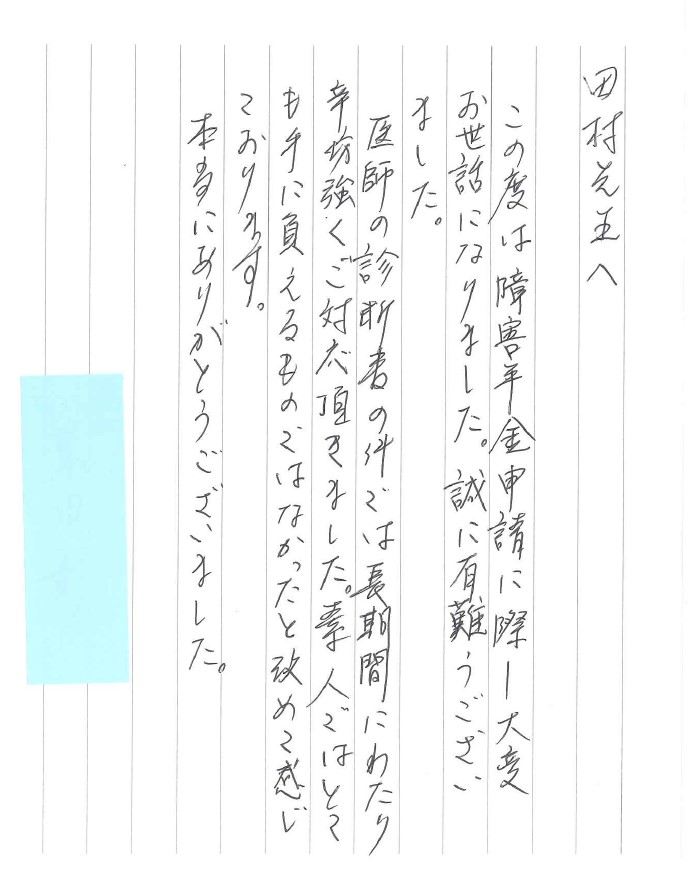 田村先生へ
この度は障害年金申請に際し大変
お世話になりました。誠に有難うござい
ました。
医師の診断書の件では長期間にわたり
辛抱強くご対応頂きました。素人ではとて
も手に負えるものではなかったと改めて感じ
ております。
本当にありがとうございました。